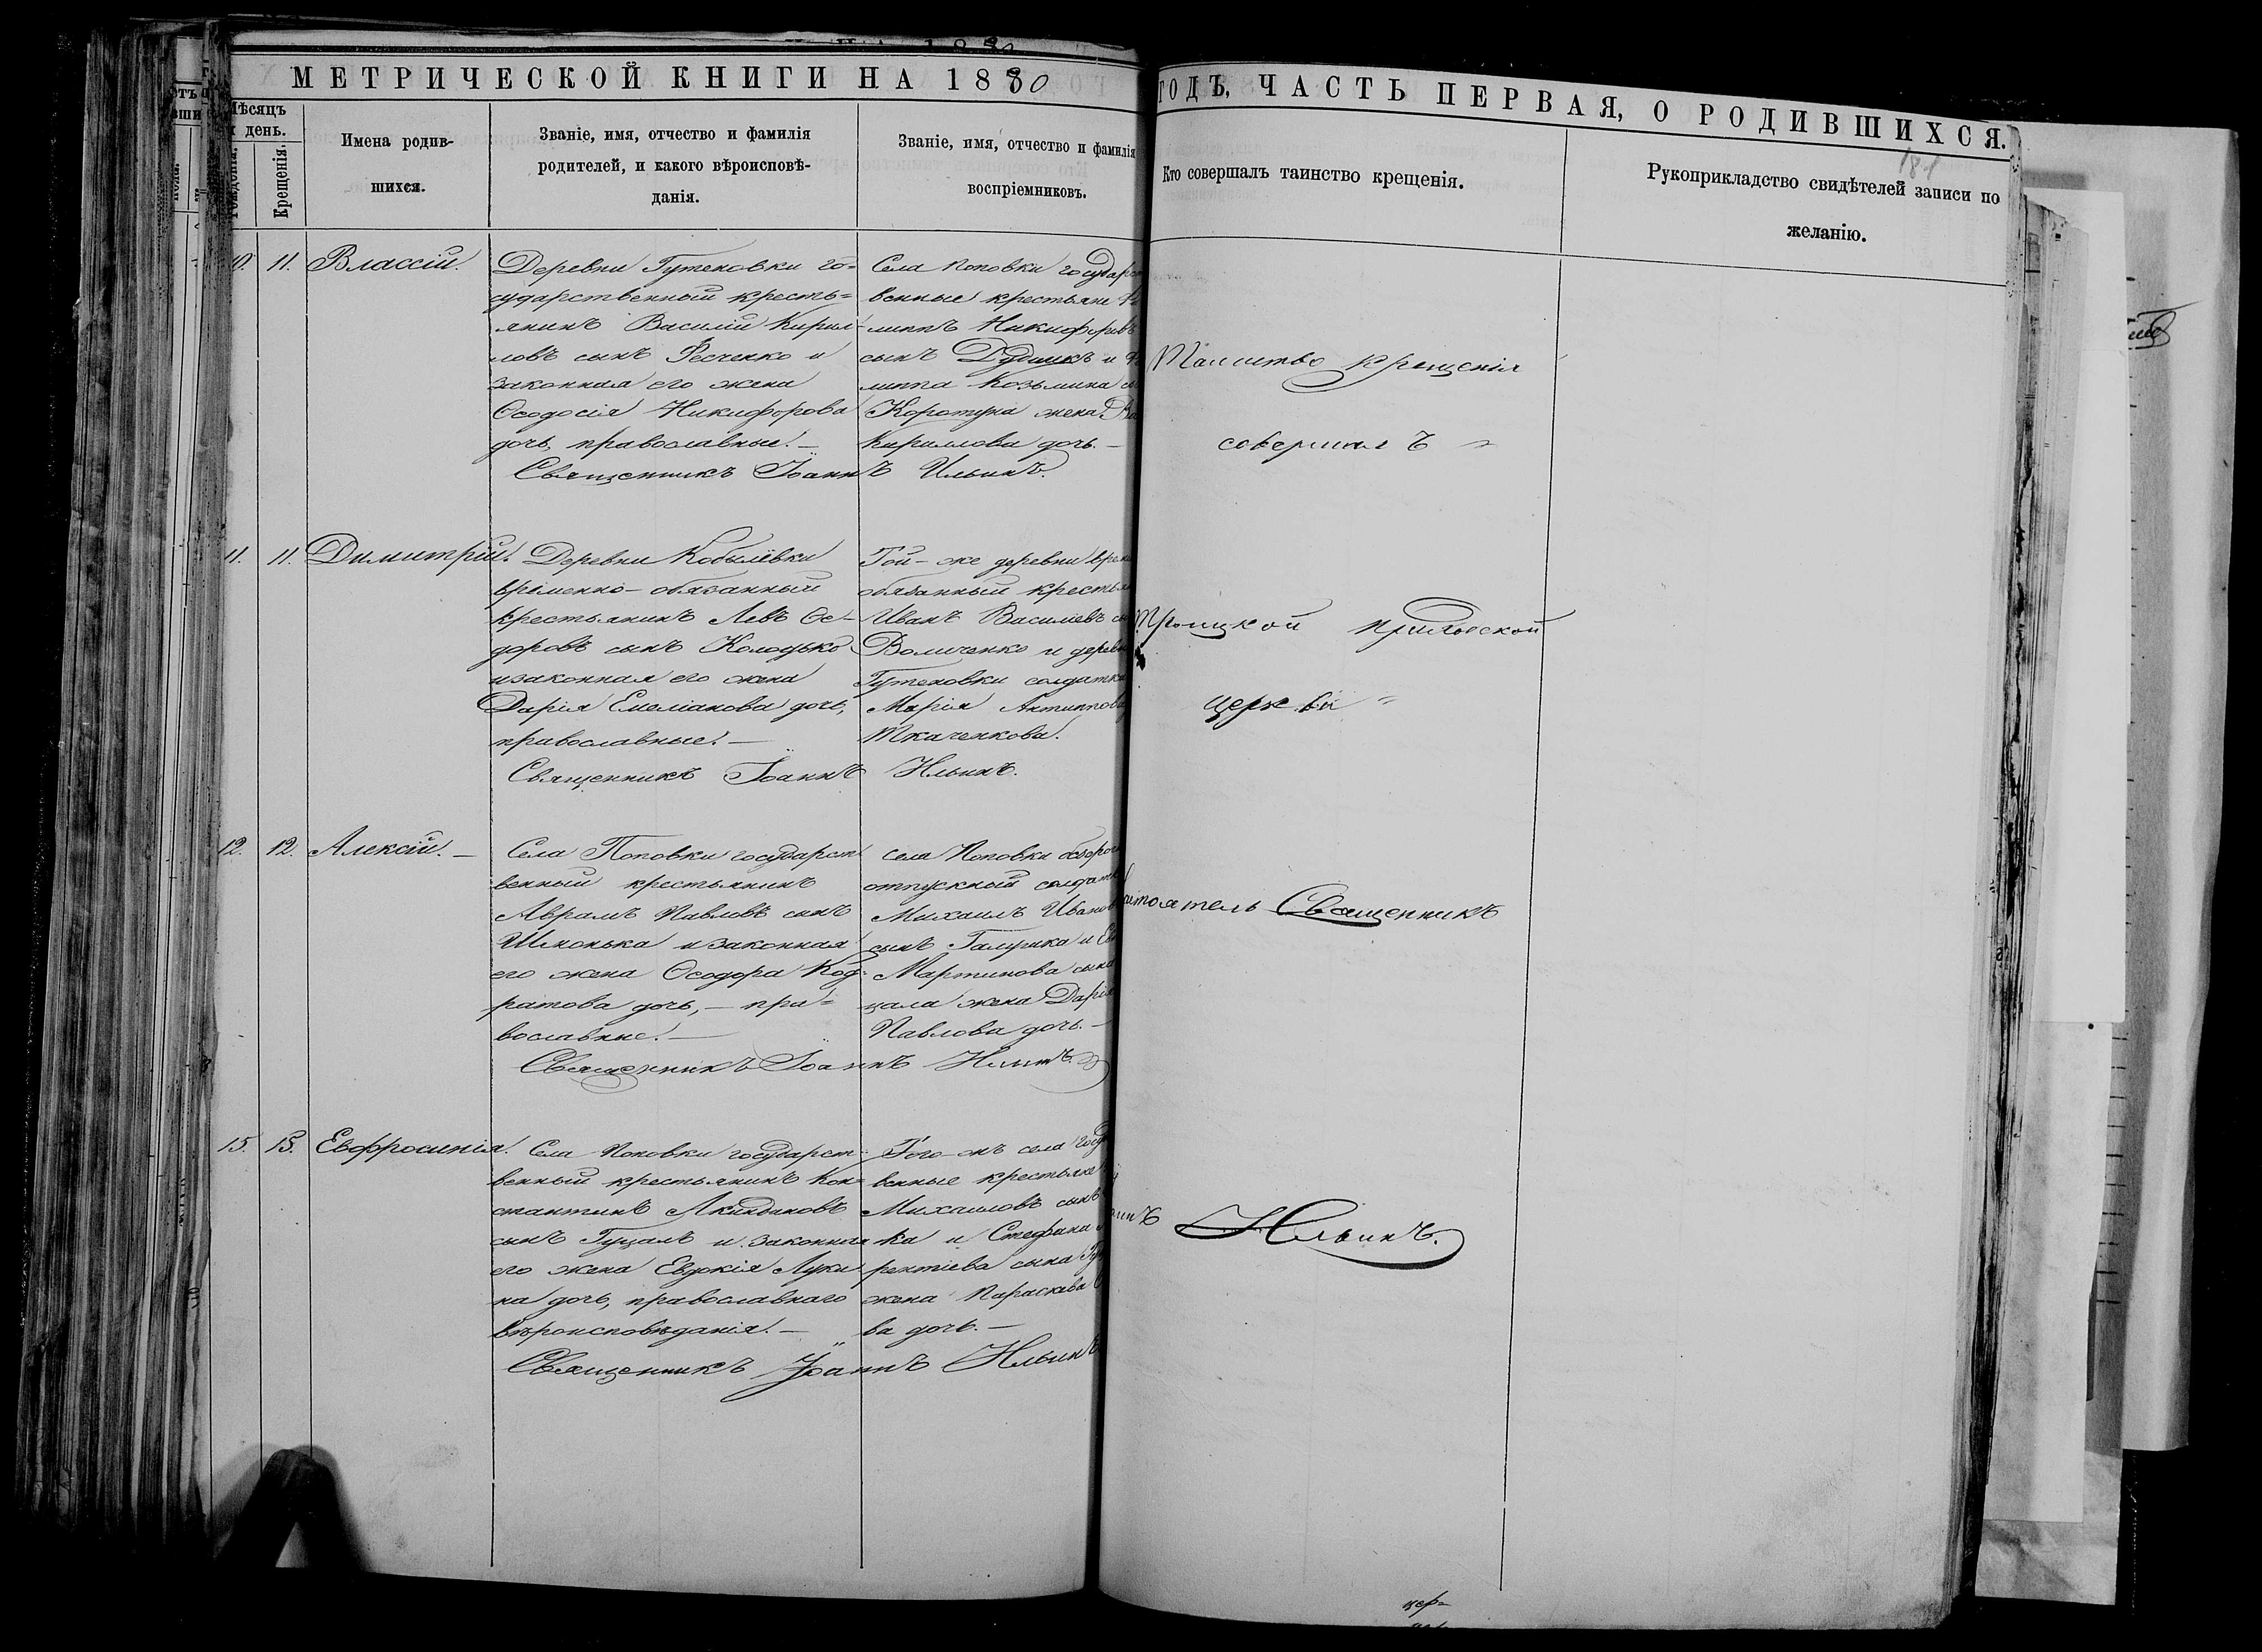 МЕТРИЧЕСКОЙ КНИГИ НА 1880
ГОДЪ, ЧАСТЬ ПЕРВАЯ, О РОДИВШИХСЯ.
Мѣсяцъ
и день.
Рожденія.
Крещенія.
Имена родив-
шихся.
Званіе, имя, отчество и фамилія
родителей, и какого вѣроисповѣ-
данія.
Званіе, имя, отчество и фамилія
воспріемниковъ.
Кто совершалъ таинство крещенія.
Рукоприкладство свидѣтелей записи по
желанію.
10. 11. Власій.
Деревни Гутеновки го-
сударственный кресть-
янинъ Василій Кирил-
ловъ сынъ Фесченко и
законная его жена
Ѳеодосія Никифорова
дочь, православные. —
Священникъ Іоаннъ Ильинъ.
Села Поповки государст
венные крестьяне
липпъ Никифоровъ
сынъ Дудникъ и
липпа Козьмина
Коротуна жена
Кириллова дочь. —
11. 11. Димитрій.
Деревни Кобылёвки
временно-обязанный
крестьянинъ Левъ Ѳе-
доровъ сынъ Колодько
и законная его жена
Дарія Емеліанова дочь,
православные. —
Священникъ Іоаннъ Ильинъ.
Той-же деревни време
обязанный крестья
Иванъ Василіевъ
Воличенко и дерев
Гутеновки солдатка
Марія Антиппова
Ткаченкова.
12. 12. Алексій. —
Села Поповки государст
венный крестьянинъ
Аврамъ Павловъ сынъ
Шмонька и законная
его жена Ѳеодора Код-
ратова дочь, — пра-
вославные. —
Священникъ Іоаннъ Ильинъ.
села Поповки
отпускный солдатъ
Михаилъ Иванов
сынъ Галушка и
Мартинова сына
цала жена Дарія
Павлова дочь. —
15. 15. Евфросинія.
Села Поповки государст-
венный крестьянинъ Кон-
стантинъ Акиндиновъ
сынъ Гуцалъ и законная
его жена Евдокія Луки-
на дочь, православнаго
вѣроисповѣданія. —
Священникъ Іоаннъ Ильинъ
Того-жъ села госуд
венные крестьяне
Михаиловъ сынъ
ка и Стефана
рентіева сына
жена Параскева
ва дочь. —
Таинство крещенія
совершалъ
Троицкой приходской
церкви
стоятель Священникъ
аннъ Ильинъ.
цер-